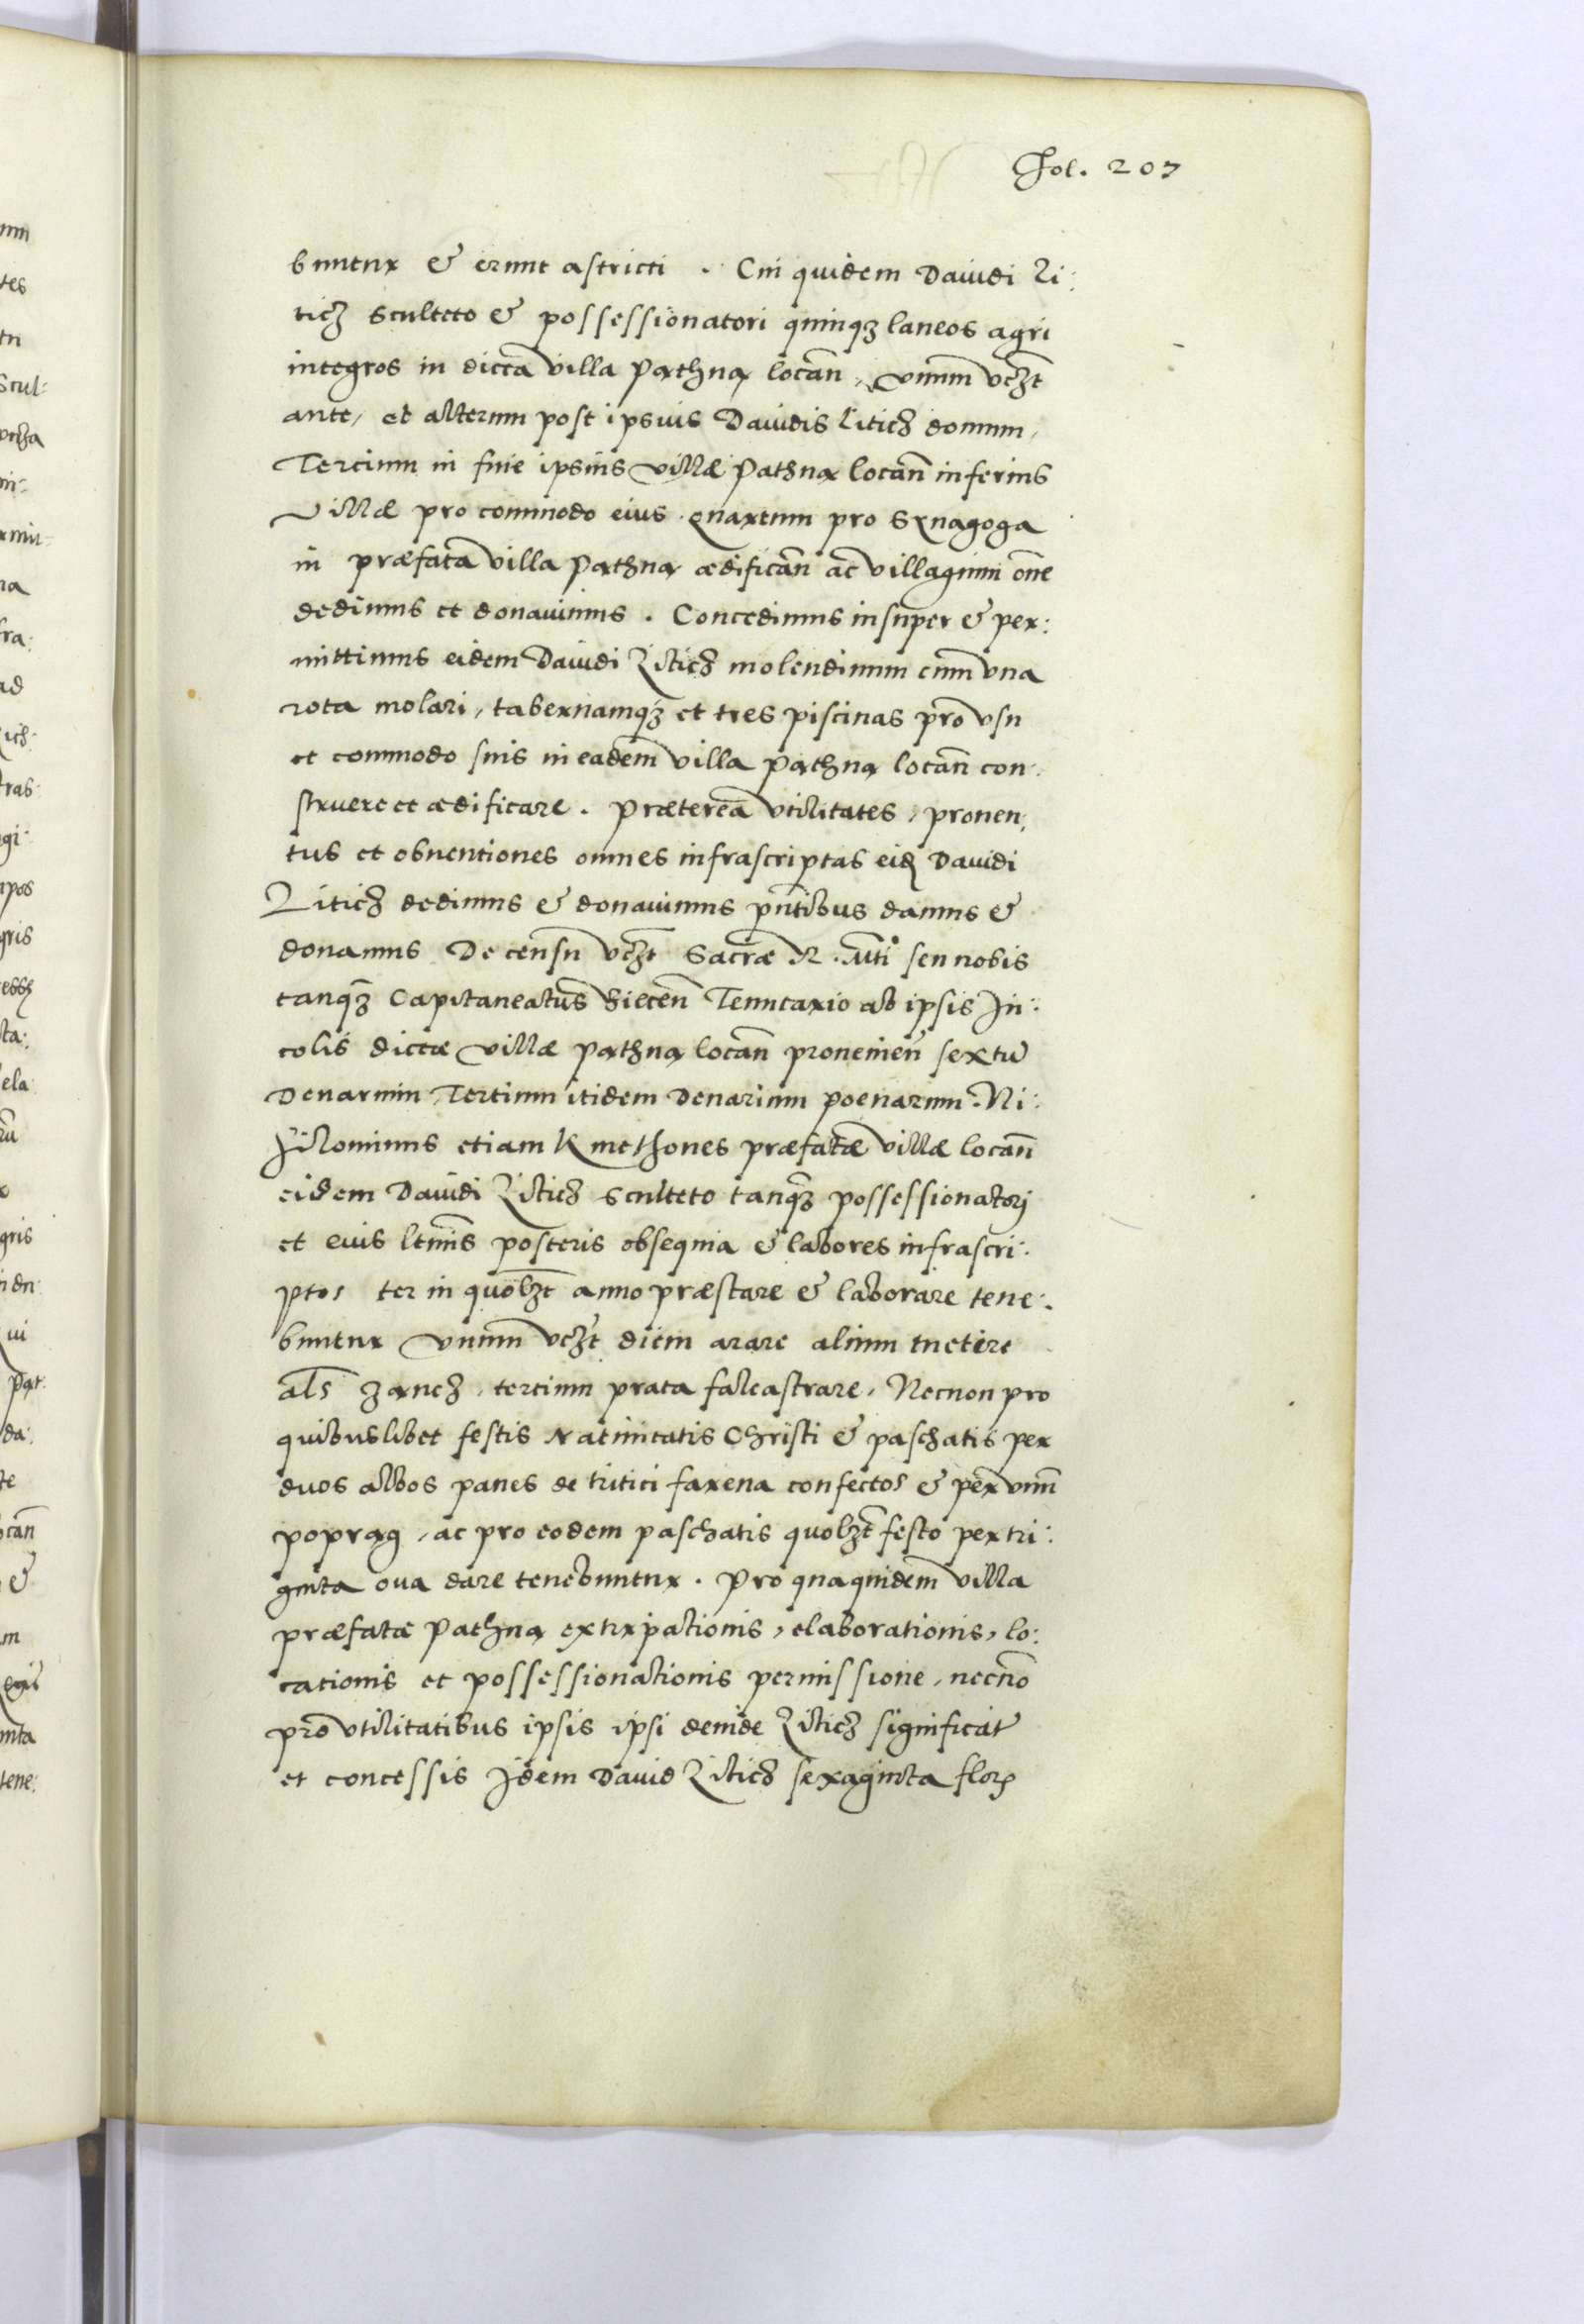 Fol. 207
buntur & erunt astricti . Cui quidem Dauidi Li:
tich Sculteto & possessionatori quinqꝫ laneos agri
integros in dicta villa Pathną locan̄, vnum vcꝫt
ante, et alterum post ipsius Dauidis Litich domum,
Tercium in fine ipsius villæ Pathną locan̄ inferius
Villæ pro commodo eius . quartum pro Synagoga
in præfata villa Pathną ædifican̄ ac villagium om̄e
dedimus et donauimus . Concedimus insuper & per:
mittimus eidem Dauidi Litich molendinum cum vna
rota molari, tabernamqꝫ et tres piscinas pro vsu
et commodo suis in eadem villa Pathną locan̄ con:
struere et ædificare . Præterea vtilitates, prouen:
tus et obuentiones omnes infrascriptas eiđ Dauidi
Litich dedimus & donauimus pn̄tibus damus &
donamus De censu vcꝫt Sacræ R . Mti seu nobis
tanqꝫ Capitaneatus Biecen̄ Tenutario ab ipsis In:
colis dictæ villæ Pathną locan̄ prouenien̄ sextū
Denarium Tertium itidem Denarium poenarum . Ni:
hilominus etiam Kmethones præfatæ villæ locan̄
eidem Dauidi Litich Sculteto tanqꝫ possessionatori
et eius ltmis posteris obsequia & labores infrascri:
ptos ter in quolꝫt anno præstare & laborare tene:
buntur vnum vcꝫt diem arare alium metere
als zancz, tertium prata falcastrare, Necnon pro
quibuslibet festis Natiuitatis Christi & paschatis per
duos albos panes de tritici farena confectos & per vnū
poprag, ac pro eodem paschatis quolꝫt festo per tri:
ginta oua dare tenebuntur . Pro qua quidem villa
præfatæ Pathną extirpationis, elaborationis, lo:
cationis et possessionationis permissione, necnō
pro vtilitatibus ipsis ipsi deinde Litich significat̄
et concessis Idem Dauid Litich sexaginta flor